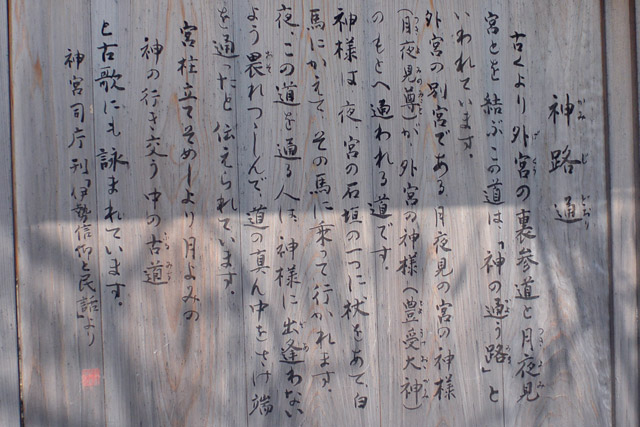 神路通
古くより外宮の裏参道と月夜見
宮とを結ぶこの道は「神の通う路」と
いわれています。
外宮の別宮である月夜見の宮の神様
（月夜見尊）が、外宮の神様（豊受大神）
のもとへ通われる道です。
神様は、夜、宮の石垣の一つに杖をあて、白
馬にかえて、その馬に乗って行かれます。
夜、この道を通る人は、神様に出逢わない
よう畏れつゝしんで、道の真ん中をさけ端
を通ったと伝えられています。
宮柱立てそめしより月よみの
神の行き交う中の古道
と古歌にも詠まれています。
神宮司庁刊「伊勢信仰と民話」より